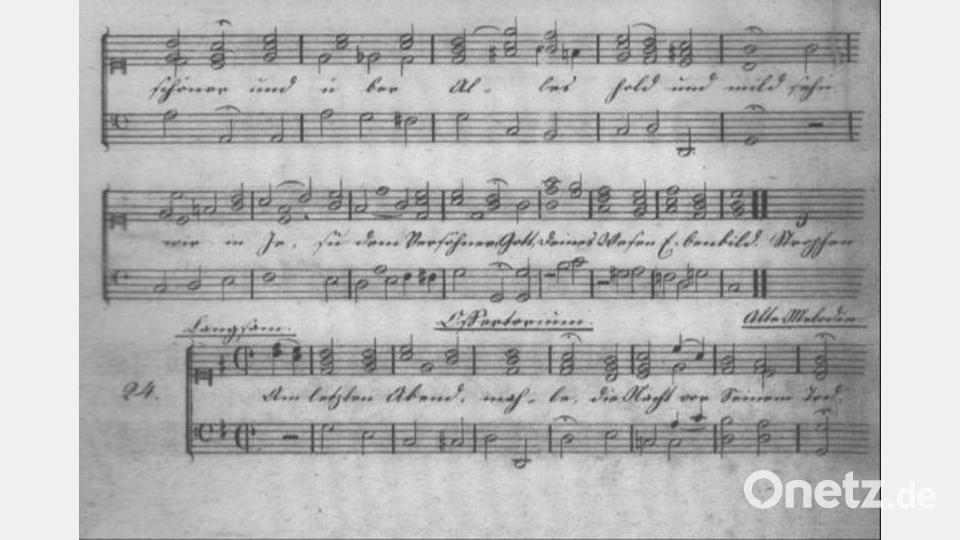 schöner und ü ber Al- les hold und mild sehn
wir in Je- su dem Versöhner Gott, deines Wesen E- benbild. Strophen
Langsam. Offertorium. Alte Melodie
24. Am letzten Abend- mah- le, die Nacht vor Seinem Tod.
Onetz.de